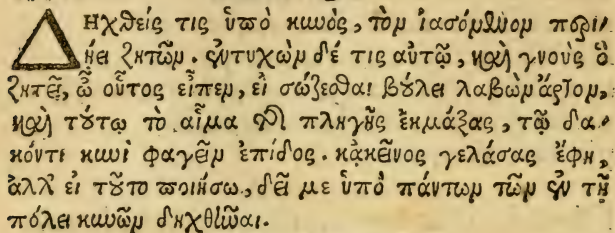 Δηχθείς τις ὑπὸ κυνὸς, τὸν ἰασόμενον περιῄ
ει ζητῶν. ἐντυχὼν δέ τις αὐτῷ, καὶ γνοὺς ὃ
ζητεῖ, ὦ οὗτος εἶπεν, εἰ σώζεσθαι βούλει λαβὼν ἄρτον,
καὶ τούτῳ τὸ αἷμα τῆς πληγῆς ἐκμάξας, τῷ δα
κόντι κυνὶ φαγεῖν ἐπίδος. κἀκεῖνος γελάσας ἔφη,
ἀλλ' εἰ τοῦτο ποιήσω, δεῖ με ὑπὸ πάντων τῶν ἐν τῇ
πόλει κυνῶν δηχθῆναι.